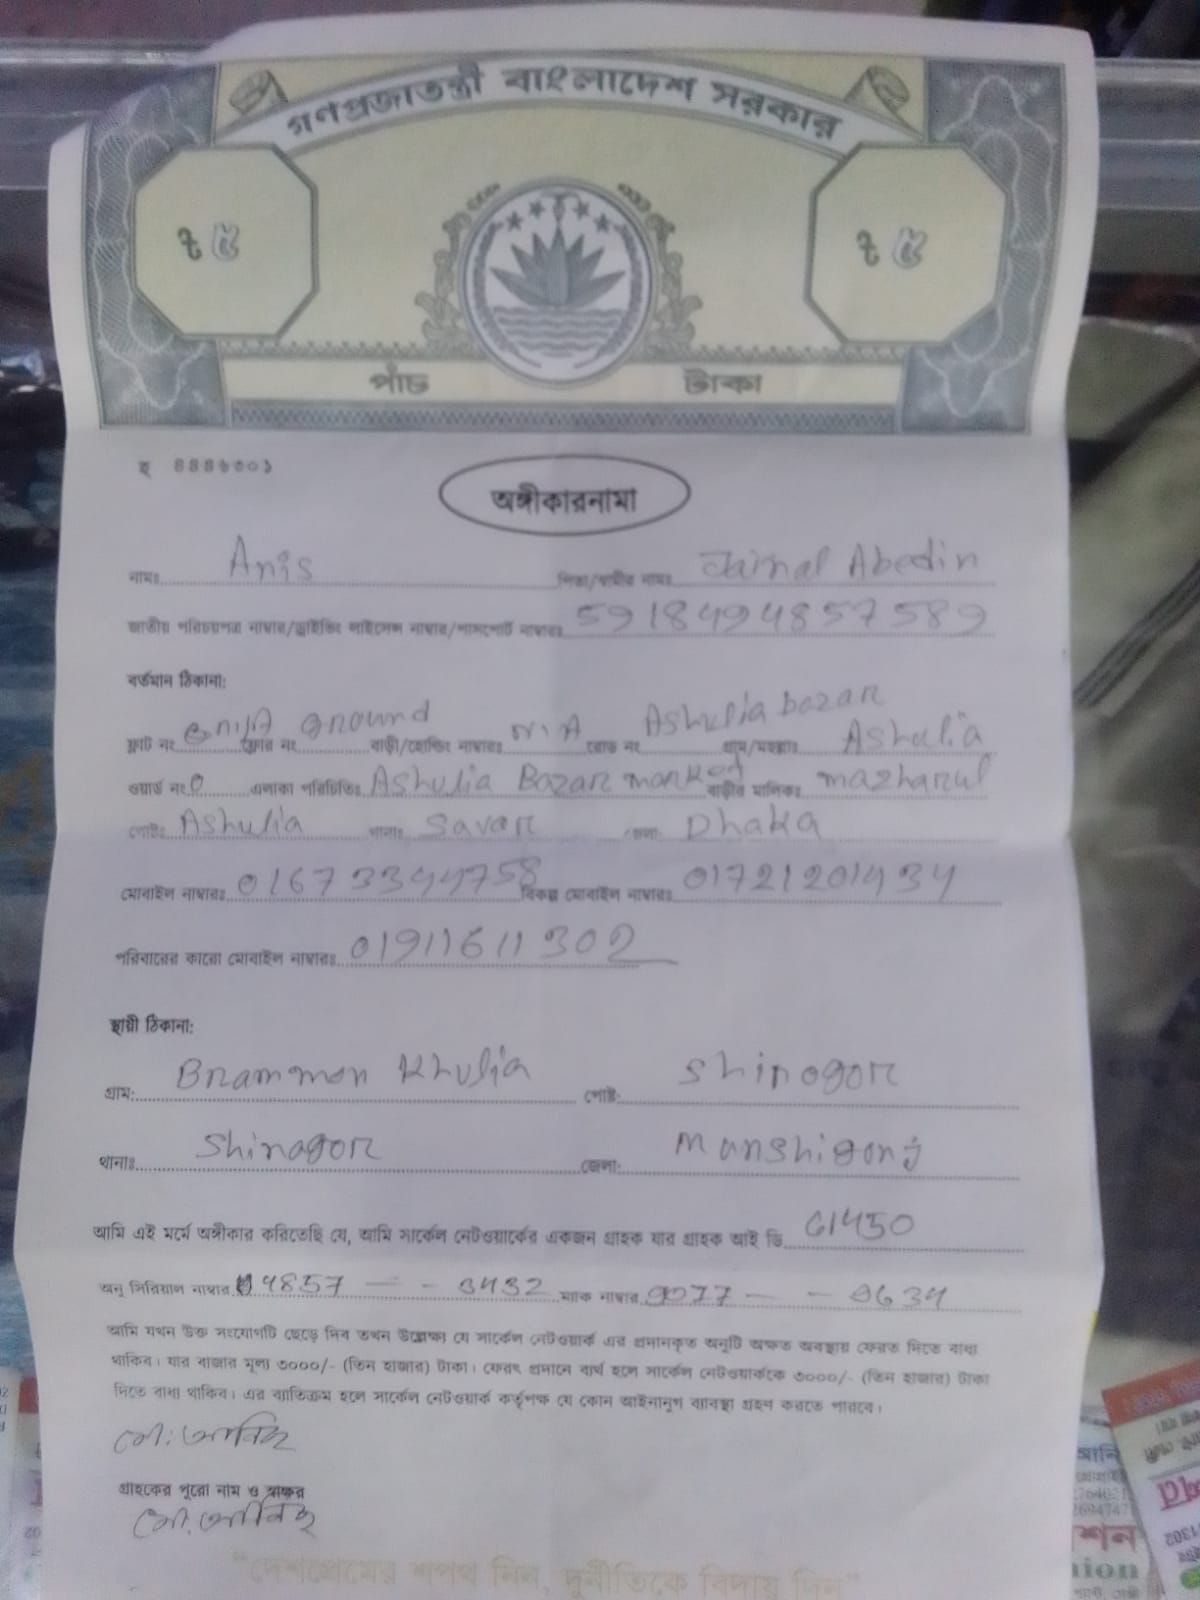 গণপ্রজাতন্ত্রী বাংলাদেশ সরকার
৳ ৫ ৳ ৫
পাঁচ টাকা
অঙ্গীকারনামা
নামঃ Anis পিতা/স্বামীর নামঃ Jainal Abedin
জাতীয় পরিচয়পত্র নাম্বার/ড্রাইভিং লাইসেন্স নাম্বার/পাসপোর্ট নাম্বারঃ 5918494857589
বর্তমান ঠিকানা:
ফ্লাট নং ফ্লোর নং Ground বাড়ী/হোল্ডিং নাম্বারঃ N.A রোড নং Ashulia bazar গ্রাম/মহল্লাঃ Ashulia
ওয়ার্ড নং 0 এলাকা পরিচিতিঃ Ashulia Bazar market বাড়ীর মালিকঃ mazharul
পোষ্টঃ Ashulia থানাঃ Savar জেলা: Dhaka
মোবাইল নাম্বারঃ 01673344758 বিকল্প মোবাইল নাম্বারঃ 01721201434
পরিবারের কারো মোবাইল নাম্বারঃ 01911611302
স্থায়ী ঠিকানা:
গ্রাম: Brammon Khulia পোষ্ট: Shinogor
থানাঃ Shinagor জেলা: Munshigonj
আমি এই মর্মে অঙ্গীকার করিতেছি যে, আমি সার্কেল নেটওয়ার্কের একজন গ্রাহক যার গ্রাহক আই ডি C1450
অনু সিরিয়াল নাম্বার 4857 - - 3432 ম্যাক নাম্বার 9077 - - 0634
আমি যখন উক্ত সংযোগটি ছেড়ে দিব তখন উল্লেক্ষা যে সার্কেল নেটওয়ার্ক এর প্রদানকৃত অনুটি অক্ষত অবস্থায় ফেরত দিতে বাধ্য
থাকিব। যার বাজার মূল্য ৩০০০/- (তিন হাজার) টাকা। ফেরৎ প্রদানে ব্যর্থ হলে সার্কেল নেটওয়ার্ককে ৩০০০/- (তিন হাজার) টাকা
দিতে বাধ্য থাকিব। এর ব্যাতিক্রম হলে সার্কেল নেটওয়ার্ক কর্তৃপক্ষ যে কোন আইনানুগ ব্যাবস্থা গ্রহন করতে পারবে।
মো: আনিছ
গ্রাহকের পুরো নাম ও স্বাক্ষর
মো. আনিছ
"দেশপ্রেমের শপথ নিন, দুর্নীতিকে বিদায় দিন"